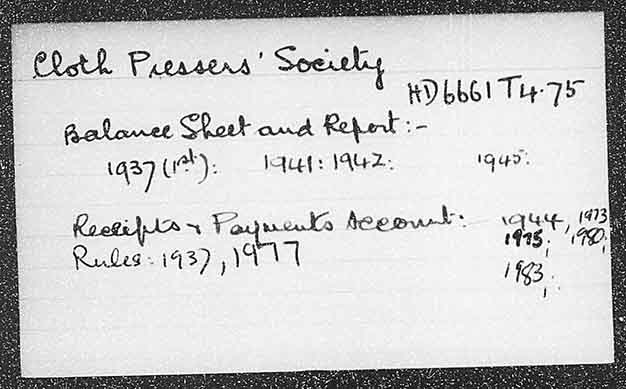 Cloth Pressers' Society
HD6661 T4.75
Balance Sheet and Report :-
1937 (1st): 1941: 1942: 1945:
Receipts & Payments Account: 1944, 1973
1975; 1980;
Rules: 1937, 1977
1983;